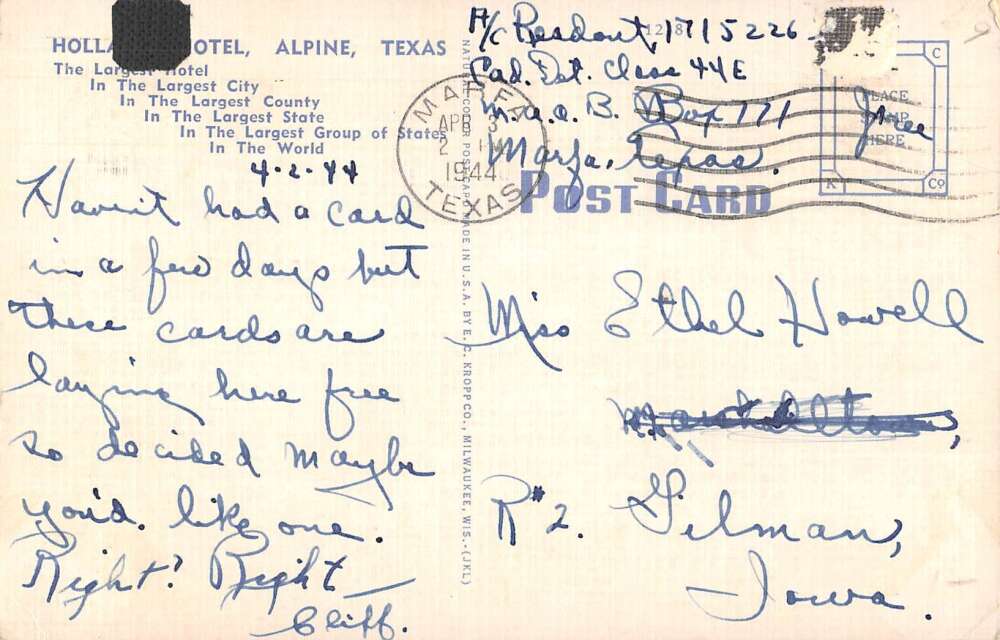 HOLLA OTEL, ALPINE, TEXAS
The Largest Hotel
In The Largest City
In The Largest County
In The Largest State
In The Largest Group of States
In The World
4-2-44
Haven't had a card
in a few days but
these cards are
laying here free
so decided maybe
you'd. like one.
Right? Right
Cliff.
NATURAL COLOR POST CARD MADE IN U.S.A. BY E. C. KROPP CO., MILWAUKEE, WIS. (JKL)
A/C 17115226
Cad. Det. Class 44E
M.A.A.B. Box 111
Marfa, Texas.
Free
MARFA
APR 3
2 PM
1944
TEXAS
PLACE
STAMP
HERE
C
K
Co
POST CARD
Miss Ethel Howell
R#2. Gilman,
Iowa.